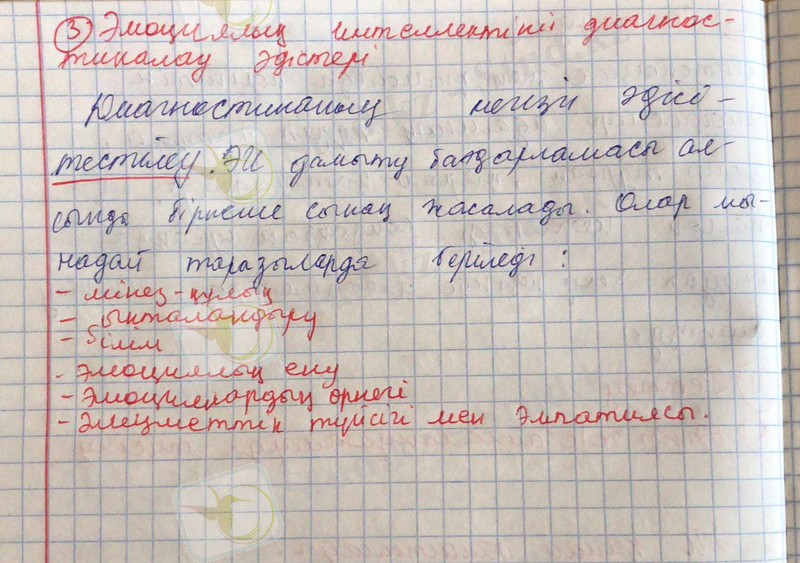 ③ Эмоциялық интеллектінің диагнос-
тикалау әдістері
Диагностиканың негізгі әдісі -
тестілеу. ЭИ дамыту бағдарламасы ал-
сында бірнеше сынақ жасалады. Олар мы-
надай таразыларда беріледі :
- мінез-құлық
- ынталандыру
- білім
- эмоциялық ену
- Эмоциялардың өрнегі
- Әлеуметтік түйсігі мен эмпатиясы.